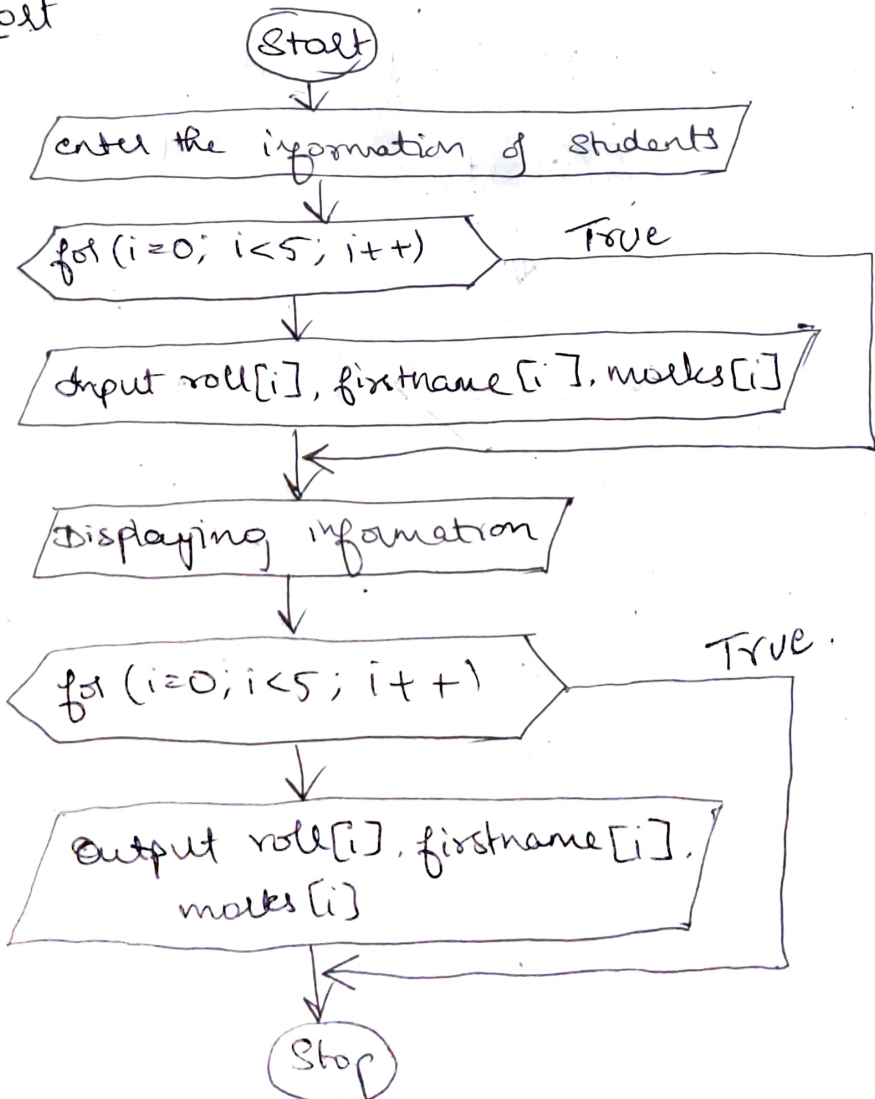 Start
enter the information of students
for (i=0; i<5; i++)
True
Input roll[i], firstname[i], marks[i]
Displaying information
for (i=0; i<5; i++)
True.
Output roll[i], firstname[i],
marks[i]
Stop